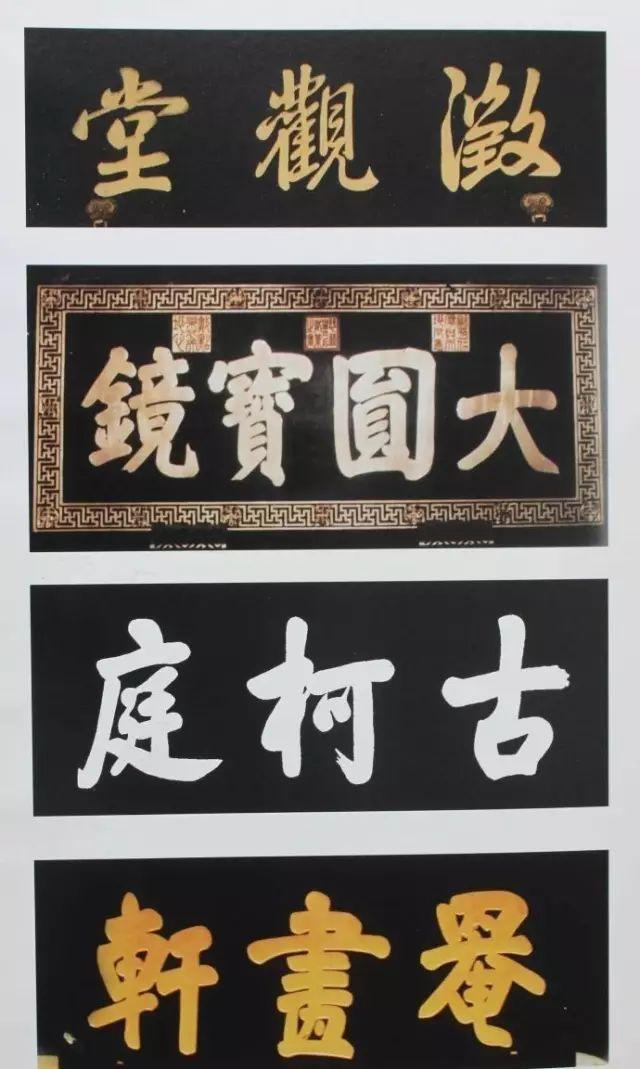 澂觀堂
大圓寶鏡
古柯庭
罨畫軒